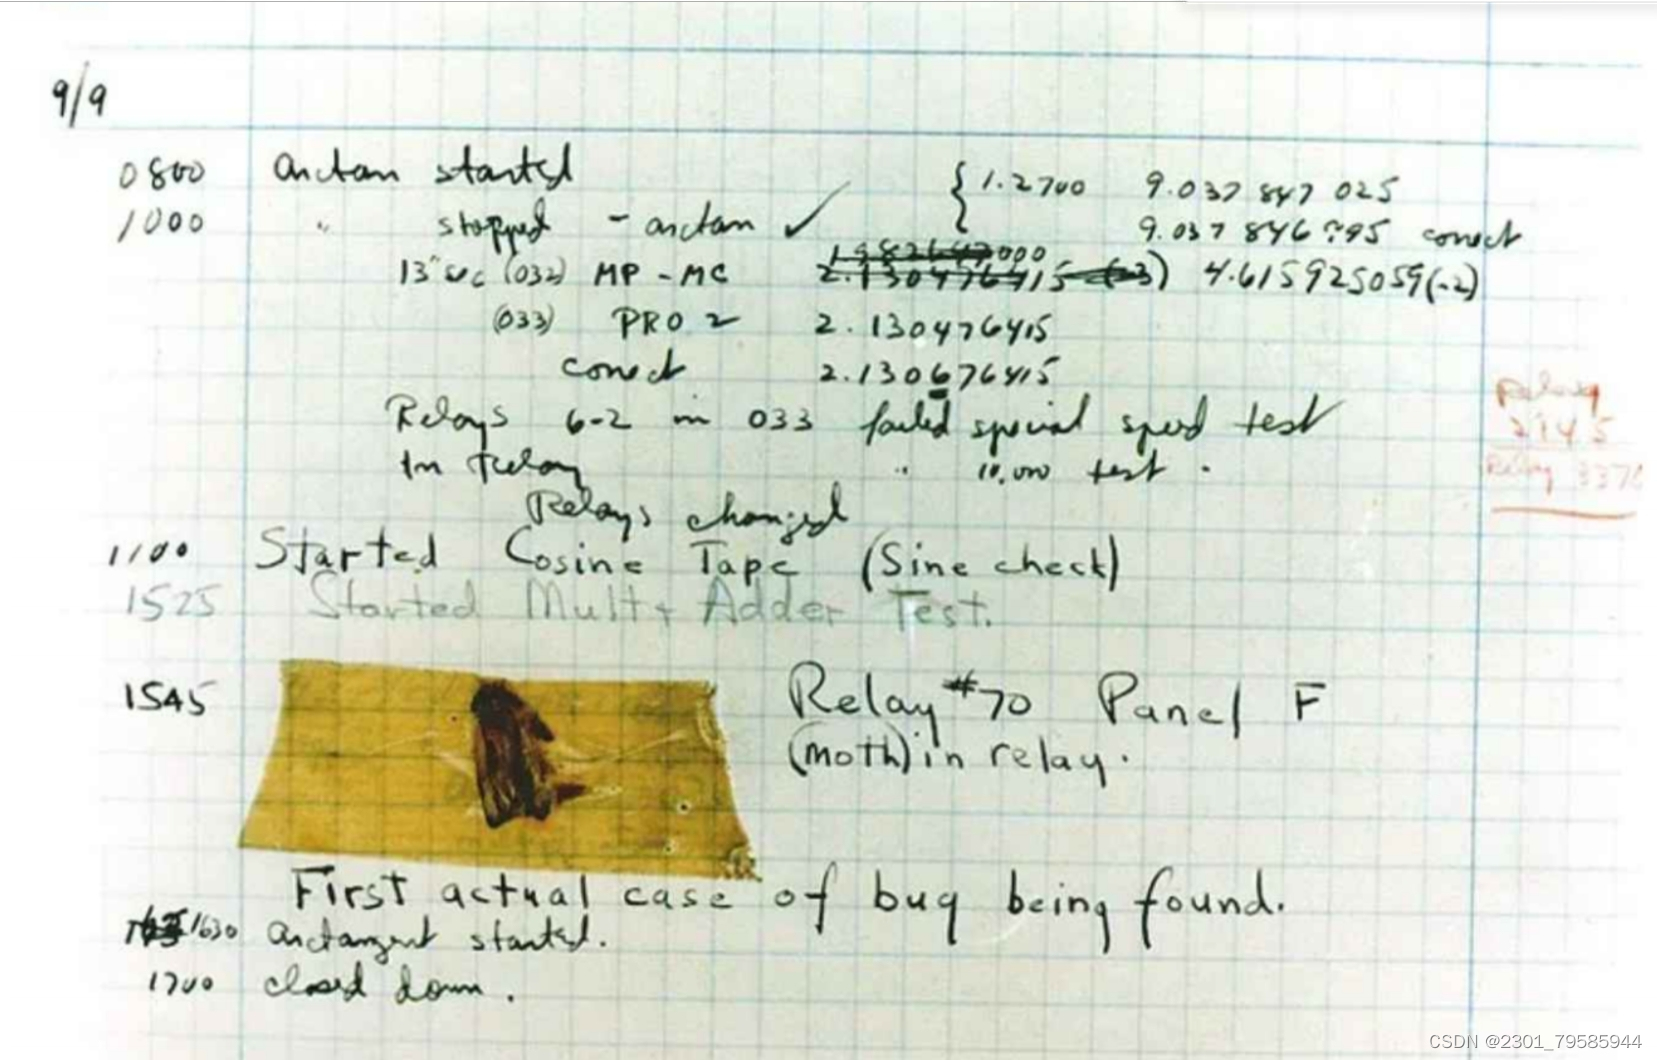 9/9
0800 arctan started { 1.2700 9.037 847 025
1000 " stopped - arctan ✓ 9.037 846 795 correct
000
13"sec (032) MP - MC 2.130476415 (-3) 4.615925059(-2)
(033) PRO 2 2.130476415
correct 2.130676415
Relays 6-2 in 033 failed special speed test
In Relay " 10,000 test .
Relay
2145
Relay 337
Relays changed
1100 Started Cosine Tape (Sine check)
1525 Started Mult + Adder Test.
1545 Relay #70 Panel F
(moth) in relay.
First actual case of bug being found.
1630 arctangent started.
1700 closed down.
CSDN @2301_79585944